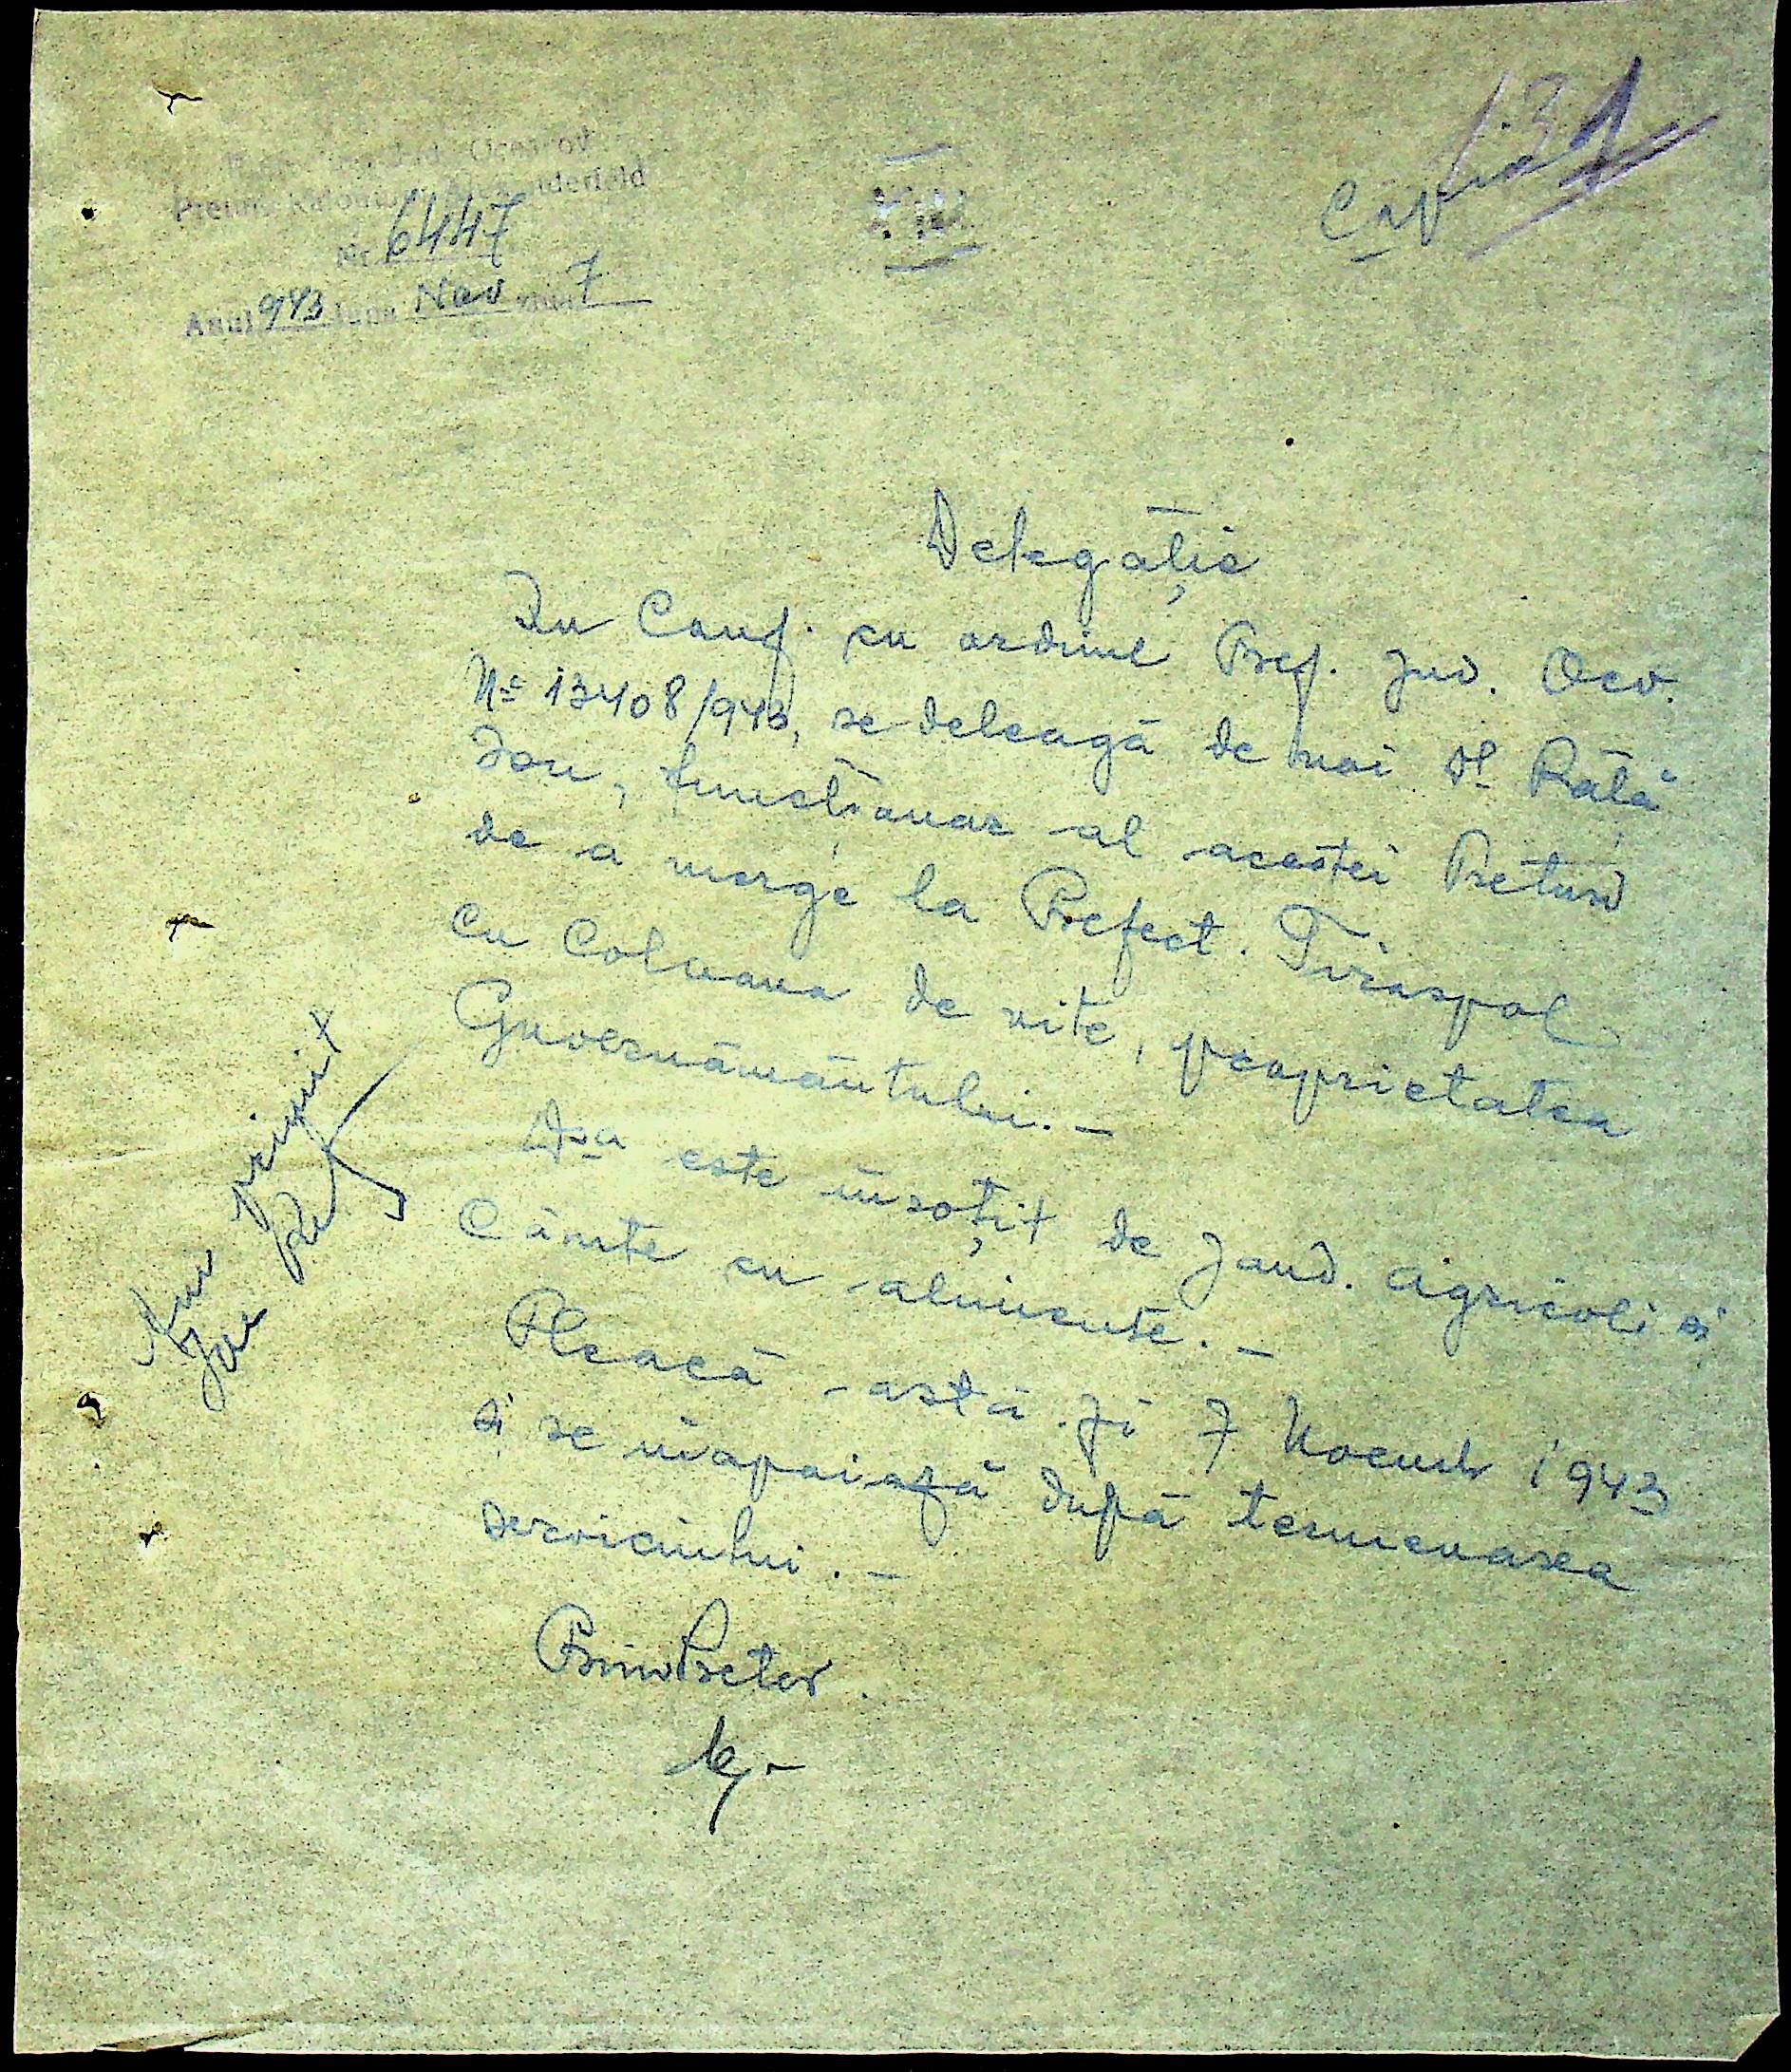 Pretura Raionului Alexanderfeld
Nr. 6447
Anul 943 luna Nov ziua 7
131
Copie
Delegație
In Conf. cu ordinul Pref. Jud. Ocv.
No 13408/943, se deleagă de noi Dl Rață
Ion, funcționar al acestei Preturi
de a merge la Prefect. Tiraspol
cu Coloana de vite, proprietatea
Guvernământului. –
Dsa este însoțit de Jand. agricoli și
Căruțe cu alimente. –
Pleacă astă zi 7 Noemb 1943
și se inapoiază după termenarea
serviciului. –
Prim Pretor.
Am primit
Ion